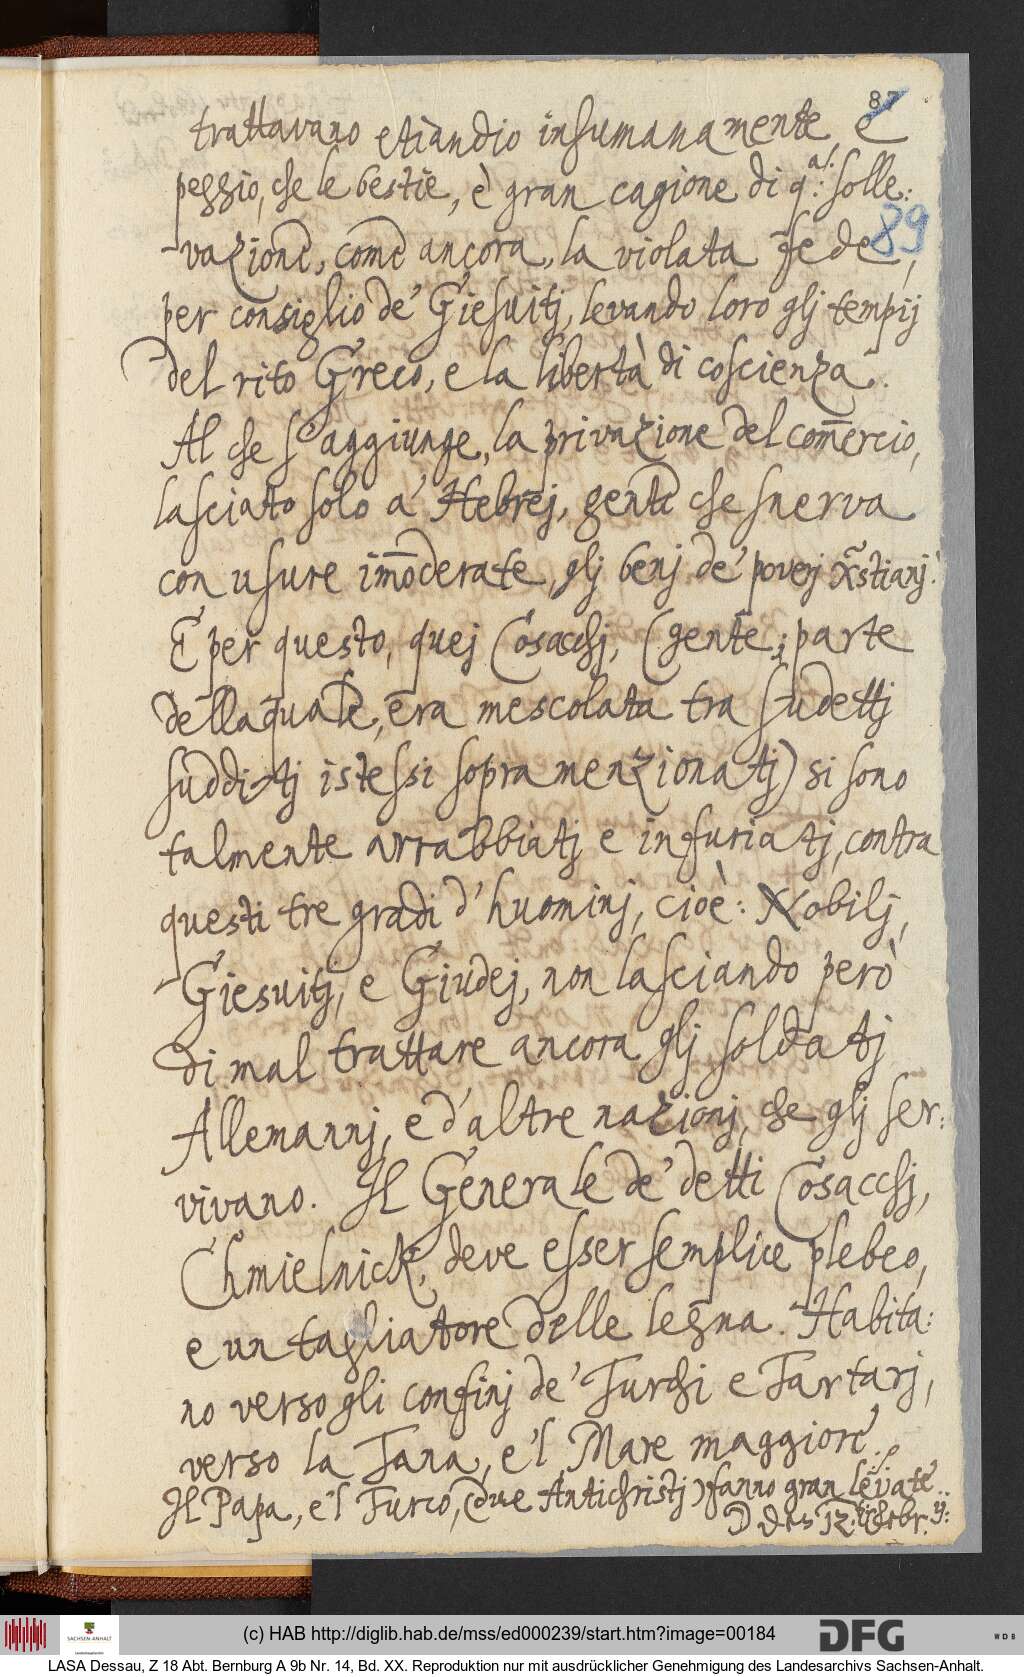 87
trattavano etiandio inhumanamente, e
peggio, che le bestie, è gran cagione di q.ᵃ: solle:
-vazione, come ancora, la violata fede,
89
per consiglio de' Giesuitj, levando loro glj tempij
del rito Greco, e la libertà di coscienza.
Al che s'aggiunge, la privazione del com̄ercio,
lasciato solo a' Hebrej, gente che snerva
con usure im̄oderate, glj benj de' poverj Xr̃stianj.
E per questo, quej Cosacchj, (gente, parte
della quale, era mescolata tra sudettj
sudditj istessi sopramenzionatj) si sono
talmente arrabbiatj e infuriatj, contra
questi tre gradi d'huominj, cioè: Nobilj,
Giesuitj, e Giudej, non lasciando però
di mal trattare ancora glj soldatj
Allemannj, e d'altre nazionj, che glj ser:
vivano. Il Generale de' detti Cosacchj,
Chmielnick, deve esser semplice plebeo,
e un tagliatore delle legna. Habita:
no verso gli confinj de' Turchi e Tartarj,
verso la Tana, e'l Mare maggiore.
Il Papa, e'l Turco, (due Antichristj) fanno gran levate..
(c) HAB http://diglib.hab.de/mss/ed000239/start.htm?image=00184
DFG
WDB
SACHSEN-ANHALT
LASA Dessau, Z 18 Abt. Bernburg A 9b Nr. 14, Bd. XX. Reproduktion nur mit ausdrücklicher Genehmigung des Landesarchivs Sachsen-Anhalt.